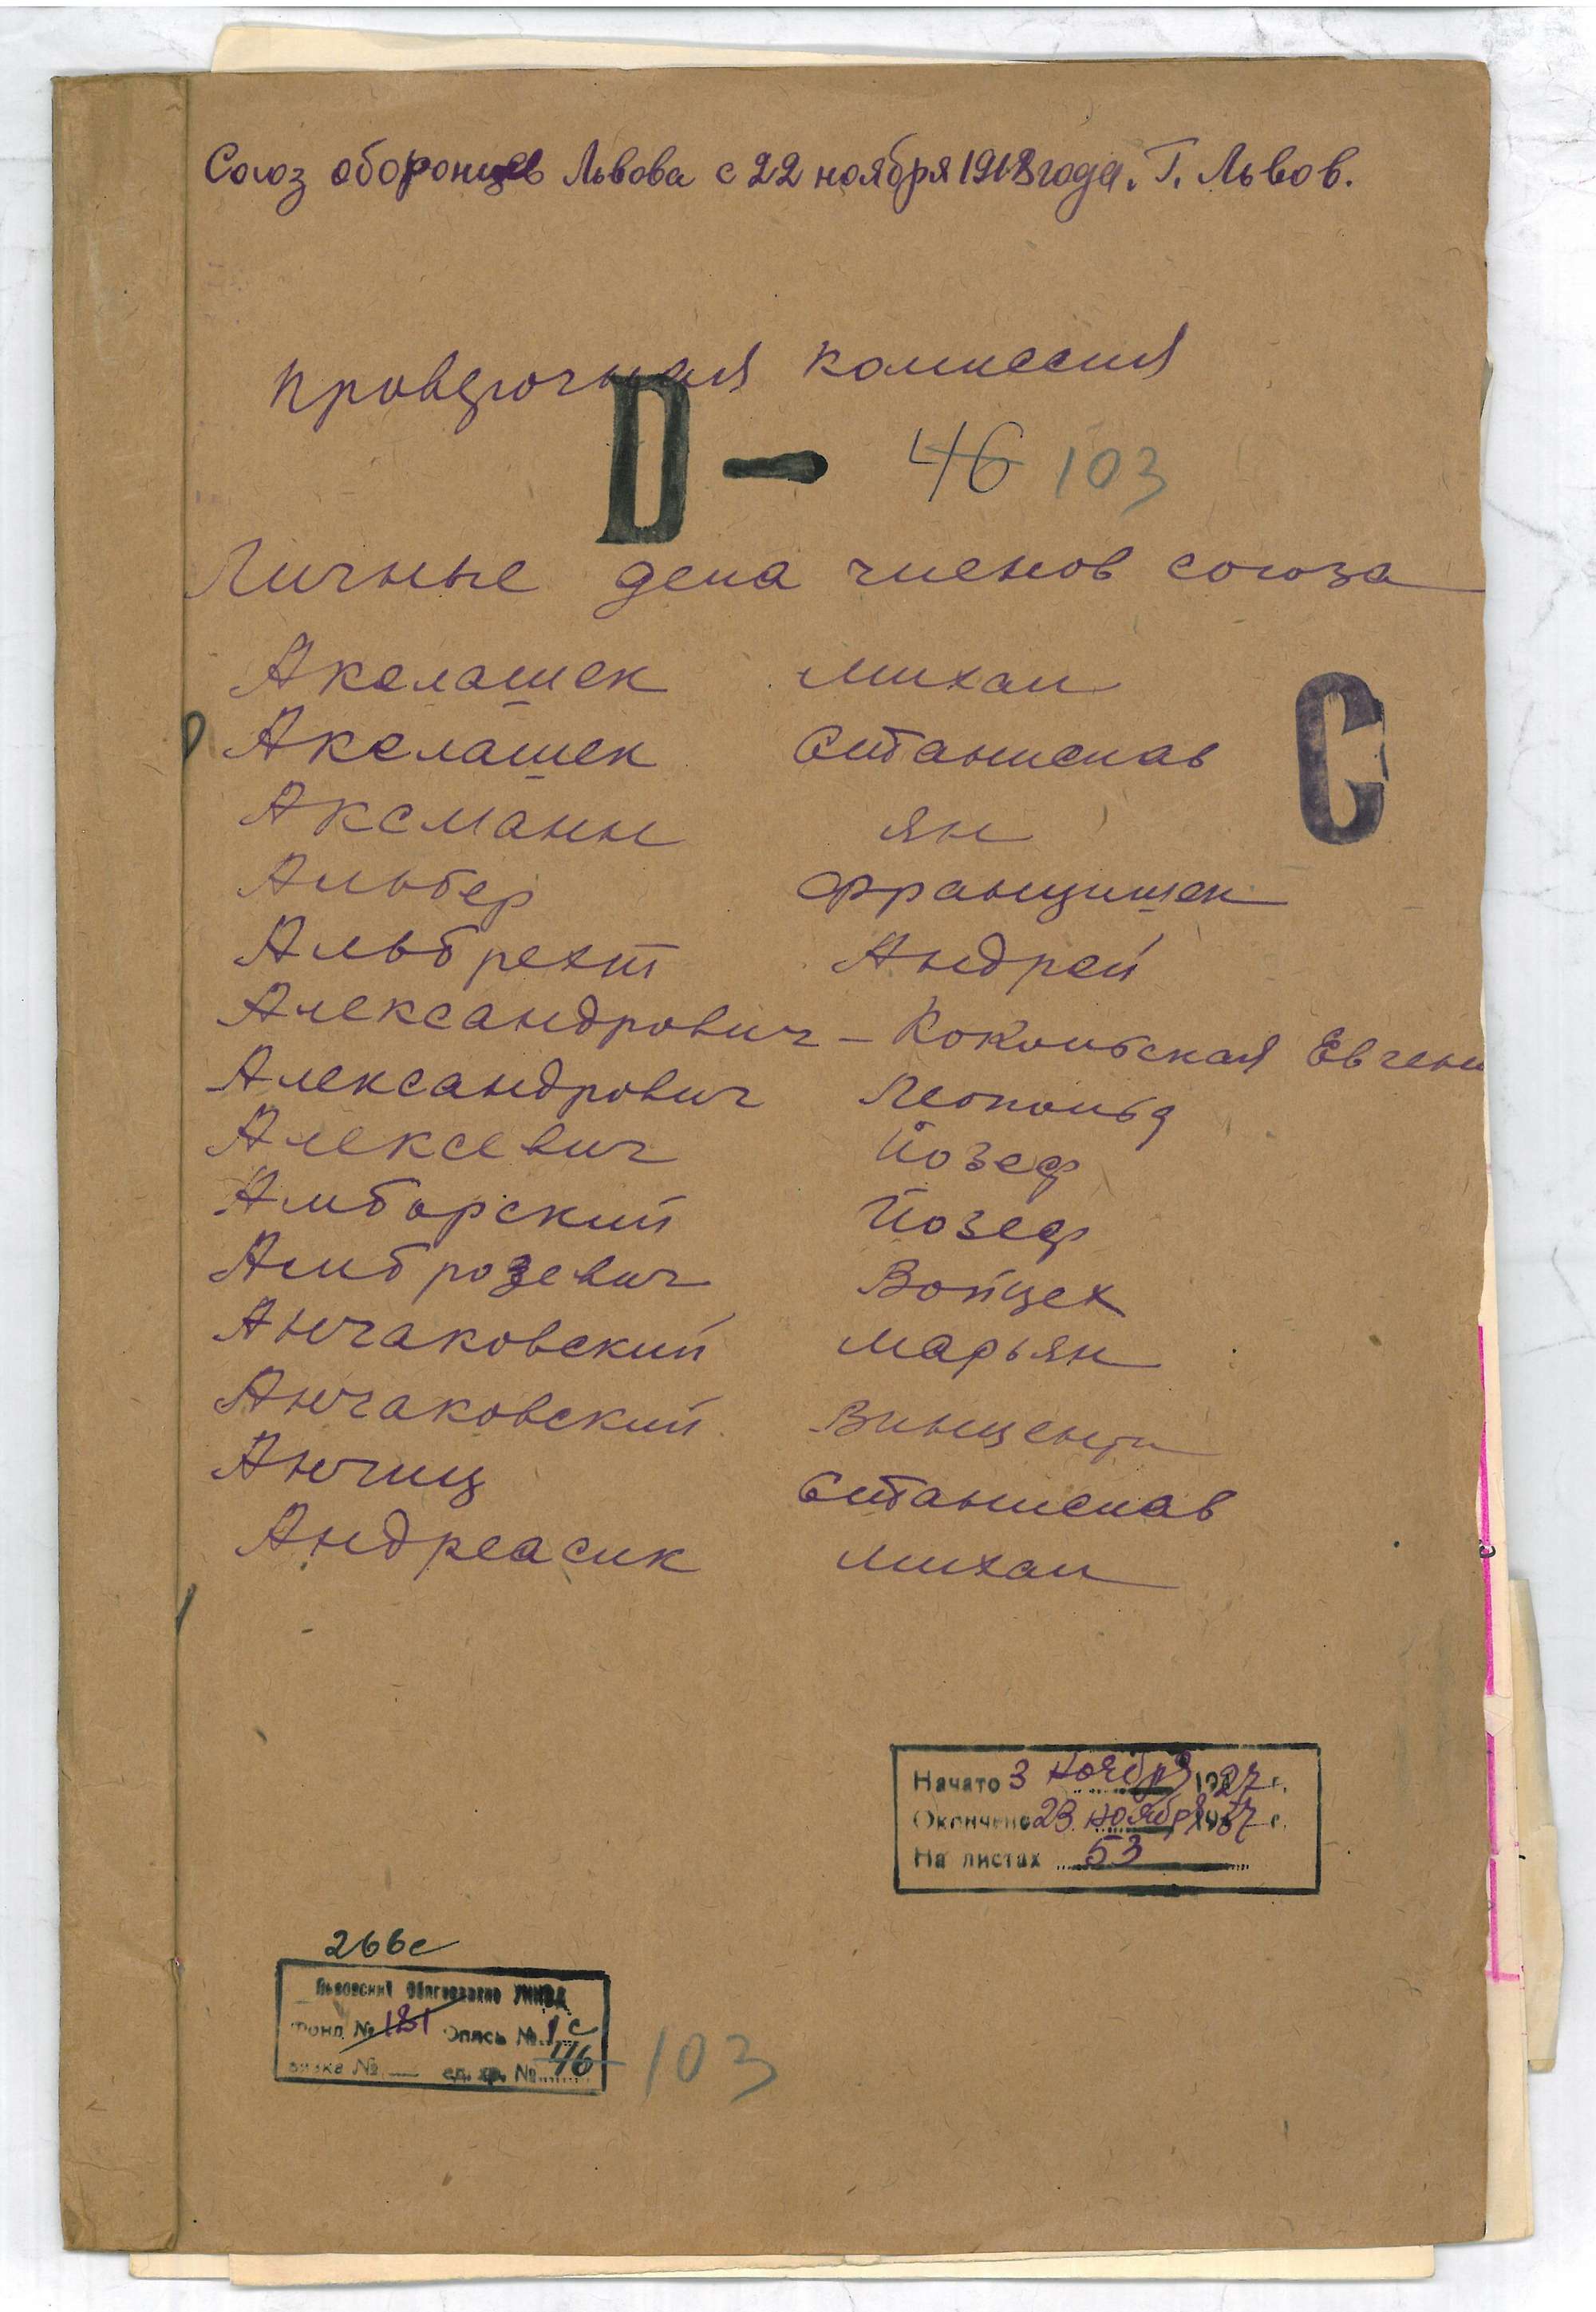 Союз оборонцев Львова с 22 ноября 1918 года. Г. Львов.
Проверочная комиссия
D — 46 103
Личные дела членов союза
Акслашек Михал
Акслашек Станислав
Аксманн Ян
Альбер Францишек
Альбрехт Андрей
Александрович - Кокольская Евгени
Александрович Леопольд
Алексевич Йозеф
С
Амборский Йозеф
Амброзевич Войцех
Анчаковский Марьян
Анчаковский Винценти
Анчиц Станислав
Андреасик Михал
Начато 3 ноября 1927 г.
Окончено 23 ноября 1927 г.
На листах 53
266с
Львовский Облгосархив УМВД
Фонд № 181 Опись № 1с
вязка № — ед. хр. № 46 103